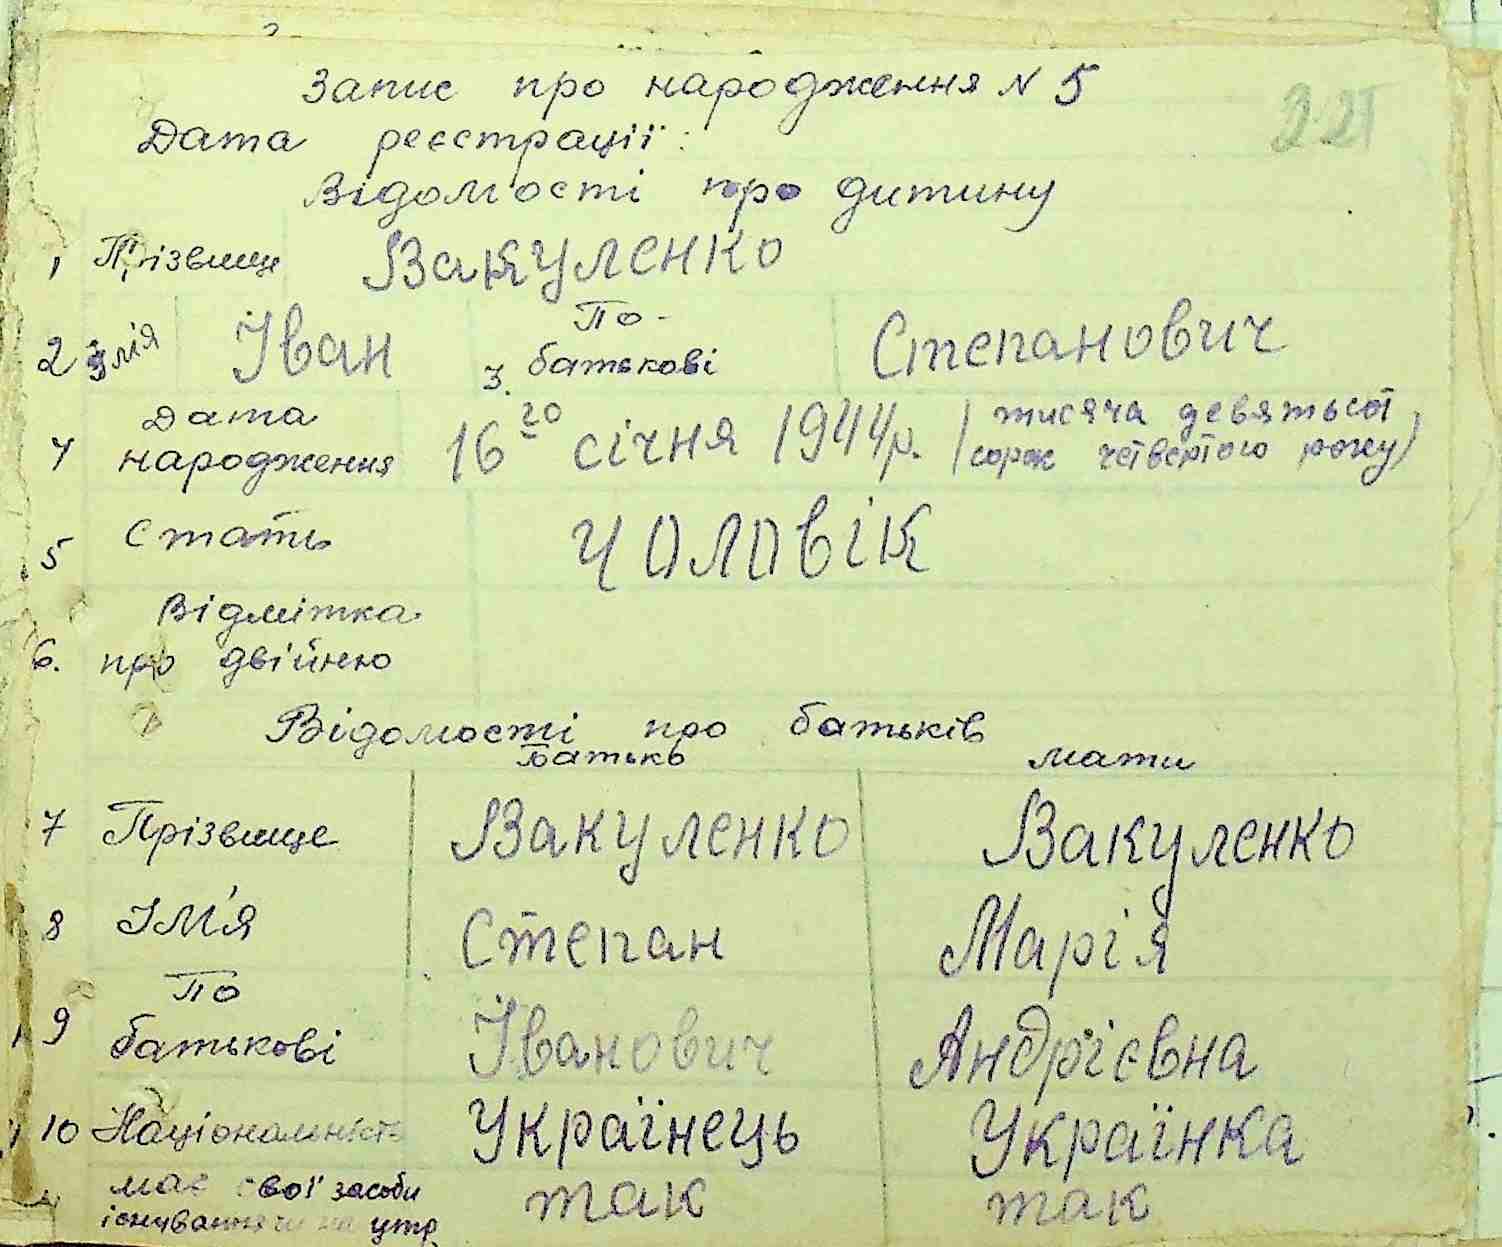 Запис про народження N 5
221
Дата реєстрації:
Відомості про дитину
1 Прізвище Вакуленко
2 Імія Іван 3. По-батькові Степанович
4 Дата народження 16го січня 1944р. (тисяча девятьсот сорок четвертого року)
5 Стать чоловік
6. Відмітка про двійню
Відомості про батьків
Батько мати
7 Прізвище Вакуленко Вакуленко
8 Ім'я Степан Марія
9 По батькові Іванович Андрієвна
10 Національність Українець Українка
має свої засоби існування чи на утр. так так